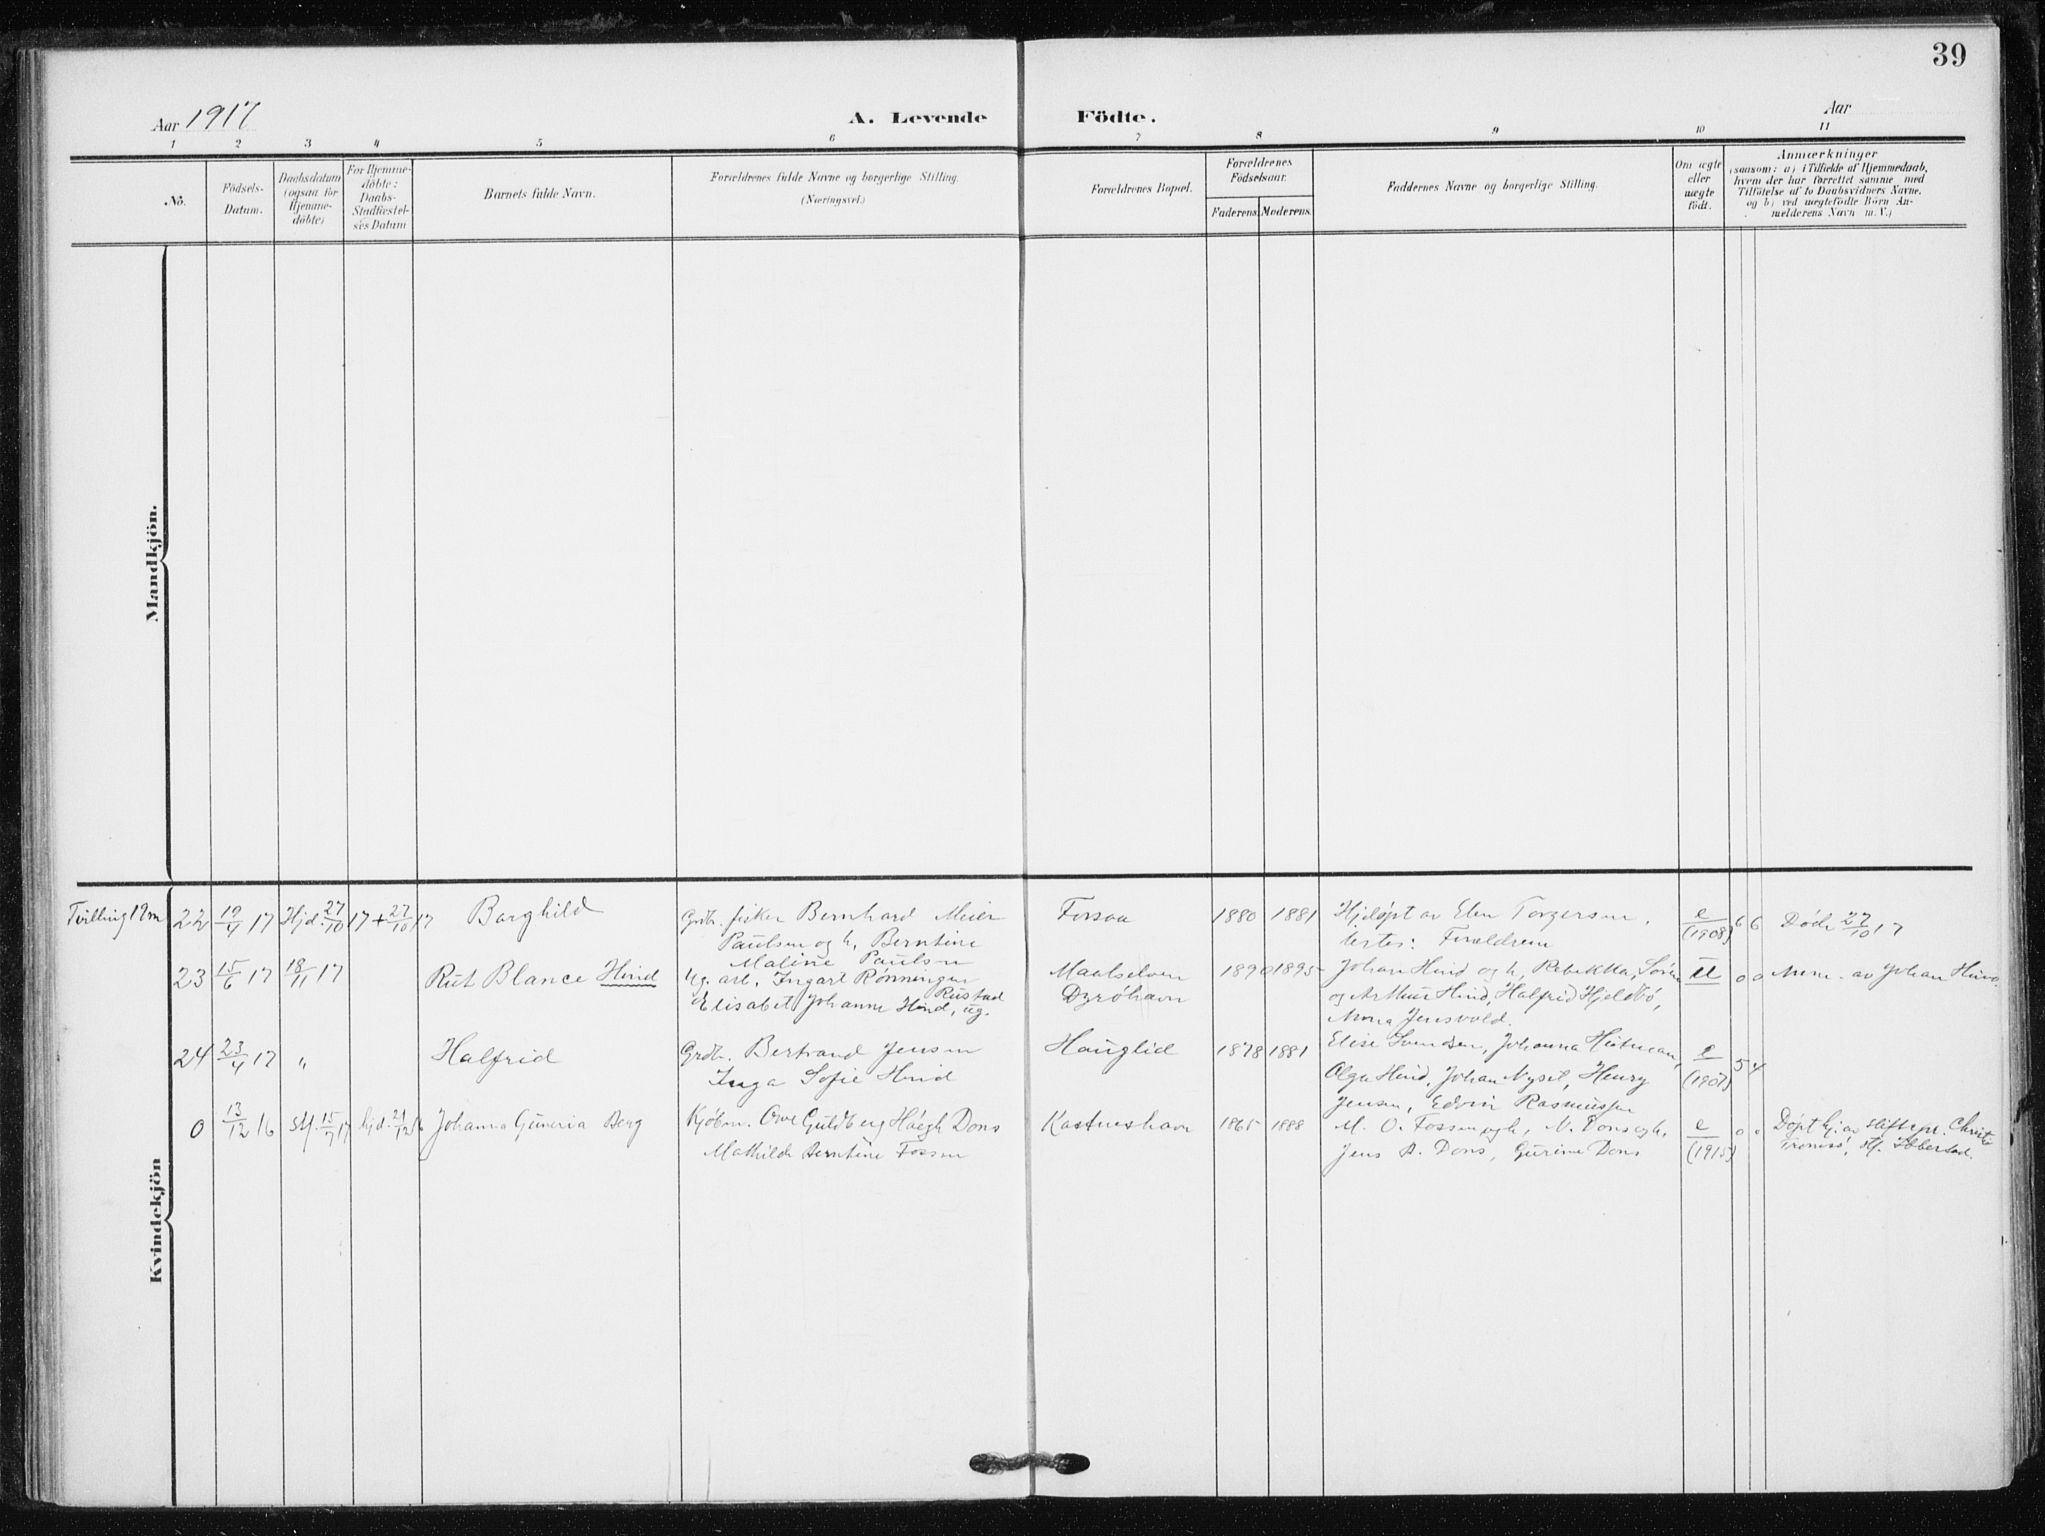 39
Aar 1917
A. Levende Födte.
Aar
1 2 3 4 5 6 7 8 9 10 11
No.
Födsels-
Datum.
Daabsdatum
(ogsaa for
Hjemme-
döbte)
For Hjemme-
döbte:
Daabs-
Stadfæstel-
ses Datum
Barnets fulde Navn.
Forældrenes fulde Navne og borgerlige Stilling.
(Næringsvei.)
Forældrenes Bopæl.
Forældrenes
Födselsaar.
Faderens. Moderens.
Faddernes Navne og borgerlige Stilling.
Om ægte
eller
uægte
födt.
Anmærkninger
(saasom: a) i Tilfælde af Hjemmedaab,
hvem der har forrettet samme med
Tilföielse af to Daabsvidners Navne,
og b) ved uægtefödte Börn An-
melderens Navn m. V.)
Mandkjön.
Kvindekjön
Tvilling 19m 22 19/4 17 Hjd. 27/10 17 + 27/10 17 Borghild Grdr. fisker Bernhard Meier Forsaa 1880 1881 Hjdöpt av Elen Torgersen, e 6 6 Döde 27/10 17
Paulsen og h, Berntine testes: Forældrene (1908)
Maline Paulsen
23 15/6 17 18/11 17 Rut Blance Hind Ug. arb, Ingart Rønningen Maalselven 1890 1895 Johan Hind og h, Rebekka, Søren u 0 0 Anm. av Johan Hind
Rustad
Elisabet Johanne Hind, ug. Dyröhavn og Arthur Hind, Halfrid Hjeldbö,
Mona Jensvold.
24 23/4 17 " Halfrid Grdr. Bertrand Jensen Hauglid 1878 1881 Elise Svendsen, Johanna e 5 4
Inga Sofie Hind Olga Hind, Johan Nyset, Henry (1907)
Jensen, Edvin Rasmussen
0 13/12 16 stf. 15/7 17 hjd. 21/12 16 Johanna Guneria Berg Kjöbm. Ove Guldberg Høegh Dons Kastneshavn 1865 1888 M. O. Fossen og h, N. Dons og h, e 0 0 Döpt hj. av stiftspr. Christ
Mathilde Berntine Fossen Jens A. Dons, Gurine Dons (1915) Tromsö, stf. Ibbestad.